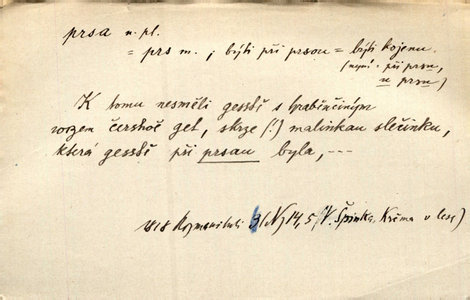 prsa n. pl.
= prs m.; býti při prsou = býti kojenu.
(nyní: při prsu,
u prsu)
K tomu nesměli gesstě s hraběnčiným
wozem čerstvě get, skrze (!) malinkau slečinku,
která gesstě při prsau byla, ---
1818 Rozmanitosti 3/IV, 14, 5 (V. Špinka, Krčma v lese)